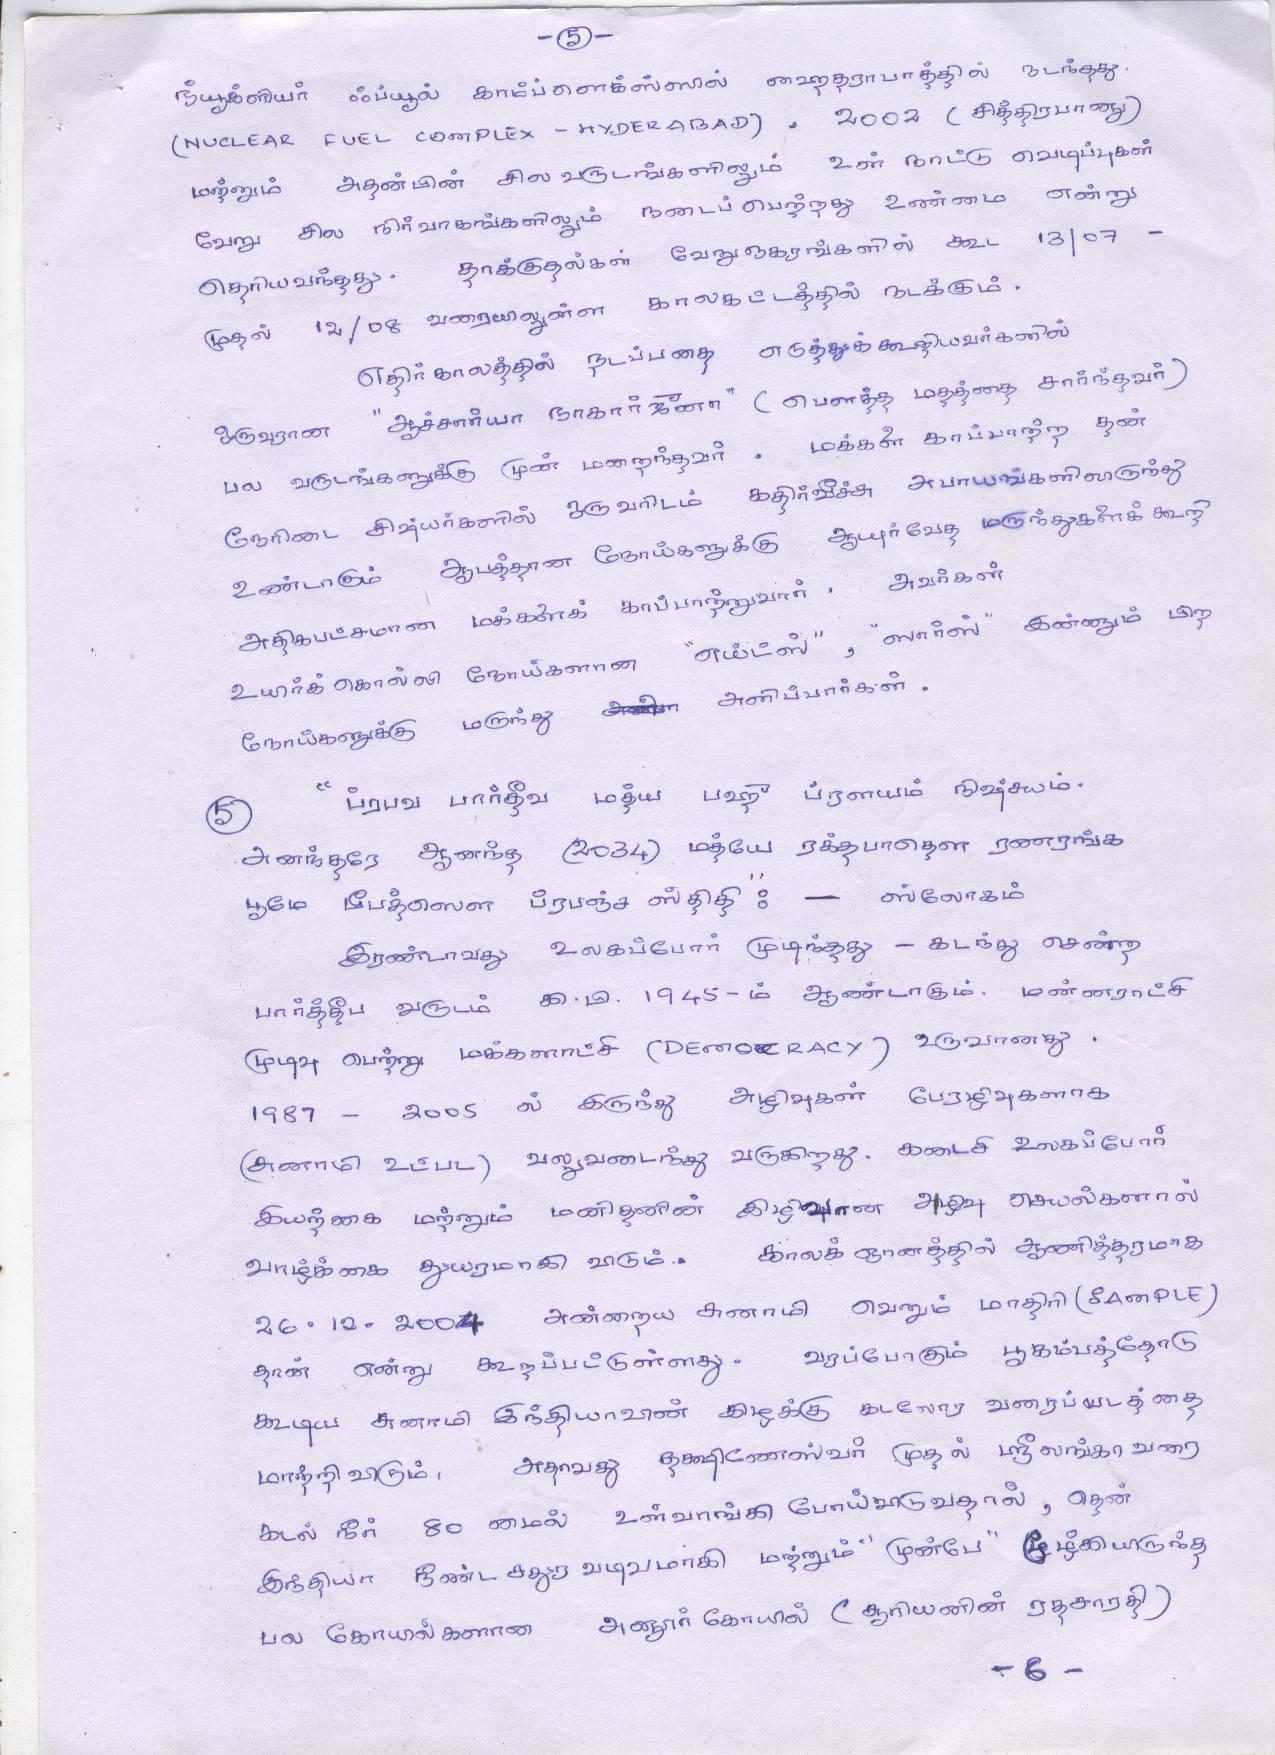 -5-
ந்யூக்ளியர் ஃப்யூல் காம்ப்ளெக்ஸ்ஸில் ஹைதராபாத்தில் நடந்தது.
(NUCLEAR FUEL COMPLEX - HYDERABAD). 2002 (சித்திரபானு)
மற்றும் அதன்பின் சில வருடங்களிலும் உள் நாட்டு வெடிப்புகள்
வேறு சில நிர்வாகங்களிலும் நடைப்பெற்றது உண்மை என்று
தெரியவந்தது. தாக்குதல்கள் வேறுநகரங்களில் கூட 13/07 -
முதல் 12/08 வரையிலுள்ள காலகட்டத்தில் நடக்கும்.
எதிர்காலத்தில் நடப்பதை எடுத்துக்கூறியவர்களில்
ஒருவரான "ஆச்சார்யா நாகார்ஜுனா" (பௌத்த மதத்தை சார்ந்தவர்)
பல வருடங்களுக்கு முன் மறைந்தவர். மக்களை காப்பாற்ற தன்
நேரிடை சிஷ்யர்களில் ஒருவரிடம் கதிர்வீச்சு அபாயங்களிலிருந்து
உண்டாகும் ஆபத்தான நோய்களுக்கு ஆயுர்வேத மருந்துகளைக் கூறி
அதிகபட்சமான மக்களைக் காப்பாற்றுவார். அவர்கள்
உயிர்க்கொல்லி நோய்களான "எய்ட்ஸ்", "ஸார்ஸ்" இன்னும் பிற
நோய்களுக்கு மருந்து அளிப்பார்கள்.
5 "ப்ரபவ பார்தீவ மத்ய பஹூ ப்ரளயம் நிஷ்சயம்.
அனந்தரே ஆனந்த (2034) மத்யே ரக்தபாதௌ ரணரங்க
பூமே பீபத்ஸௌ ப்ரபஞ்ச ஸ்திதி": - ஸ்லோகம்
இரண்டாவது உலகப்போர் முடிந்தது - கடந்து சென்ற
பார்த்தீப வருடம் கி.பி. 1945-ம் ஆண்டாகும். மன்னராட்சி
முடிவு பெற்று மக்களாட்சி (DEMOCRACY) உருவானது.
1987 - 2005 ல் இருந்து அழிவுகள் பேரழிவுகளாக
(சுனாமி உட்பட) வலுவடைந்து வருகிறது. கடைசி உலகப்போர்
இயற்கை மற்றும் மனிதனின் இழிவான அழிவு செயல்களால்
வாழ்க்கை துயரமாகி விடும். காலக் ஞானத்தில் ஆணித்தரமாக
26.12.2004 அன்றைய சுனாமி வெறும் மாதிரி (SAMPLE)
தான் என்று கூறப்பட்டுள்ளது. வரப்போகும் பூகம்பத்தோடு
கூடிய சுனாமி இந்தியாவின் கிழக்கு கடலோர வரைப்படத்தை
மாற்றிவிடும். அதாவது தக்ஷிணேஸ்வர் முதல் ஸ்ரீலங்கா வரை
கடல் நீர் 80 மைல் உள்வாங்கி போய்விடுவதால், தென்
இந்தியா நீண்ட சதுர வடிவமாகி மற்றும் "முன்பே" மூழ்கியிருந்த
பல கோயில்களான அனூர் கோயில் (சூரியனின் ரதசாரதி)
- 6 -